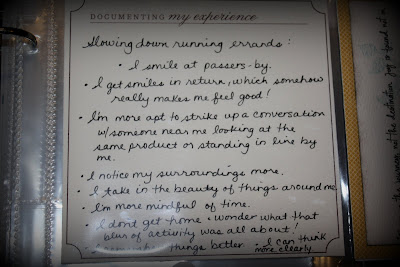 DOCUMENTING my experience
Slowing down running errands:
• I smile at passers-by.
• I get smiles in return, which somehow
really makes me feel good!
• I'm more apt to strike up a conversation
w/someone near me looking at the
same product or standing in line by
me.
• I notice my surroundings more.
• I take in the beauty of things around me.
• I'm more mindful of time.
• I don't get home & wonder what that
blur of activity was all about!
• I remember things better • I can think
more clearly